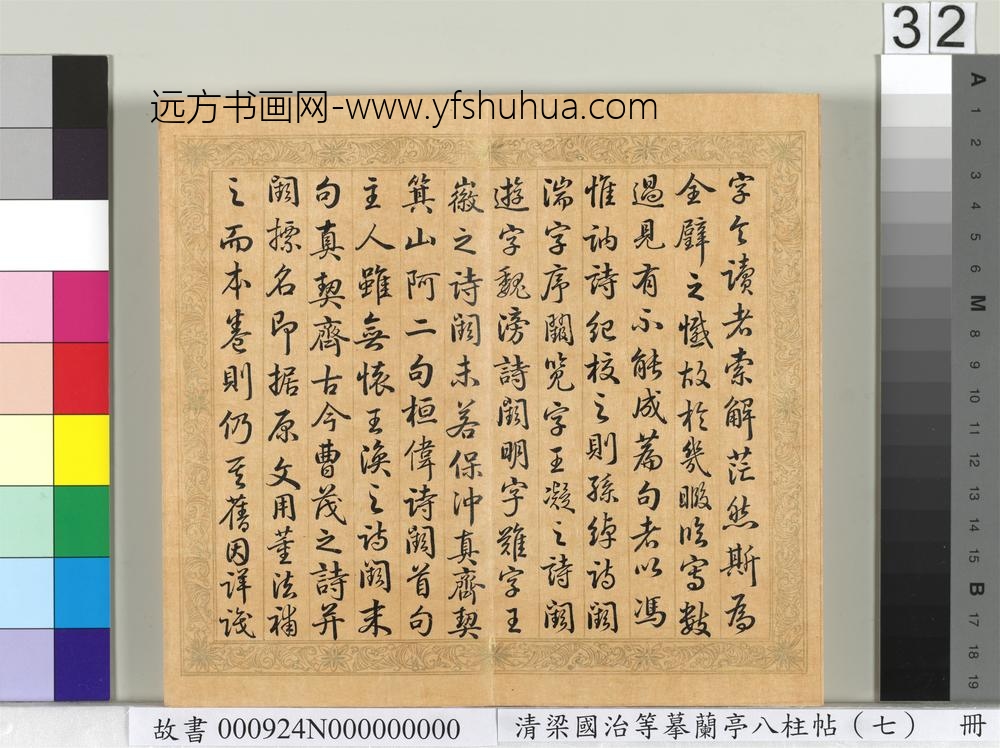 32
远方书画网-www.yfshuhua.com
字令讀者索解茫然斯為
全璧之憾故於幾暇臨寫數
過見有不能成篇句者以馮
惟訥詩紀校之則孫綽詩闕
湍字序闕覽字王凝之詩闕
遊字魏滂詩闕明字難字王
徽之詩闕未若保沖真齊契
箕山阿二句桓偉詩闕首句
主人雖無懷王渙之詩闕末
句真契齊古今曹茂之詩并
闕標名即據原文用董法補
之而本卷則仍其舊因詳識
A
1
2
3
4
5
6
M
8
9
10
11
12
13
14
15
B
17
18
19
故書 000924N000000000
清梁國治等摹蘭亭八柱帖（七） 冊